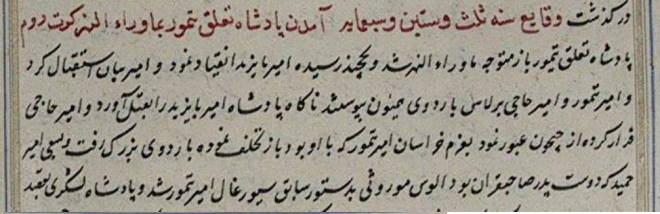 درگذشت وقایع سنه ثلث وستین وسبعمایه آمدن پادشاه تغلق تیمور بماوراء النهر کرت دوم
پادشاه تغلق تیمور باز متوجه ماوراء النهر شد و بخجند رسیده امیر بایزید انقیاد نمود و امیر بیان استقبال کرد
و امیر تیمور و امیر حاجی برلاس باردوی همیون پیوستند ناکاه پادشاه امیر بایزید را بقتل آورد و امیر حاجی
فرار کرده از جیحون عبور نمود بعزم خراسان امیر تیمور که با او بود باز تخلف نموده باردوی بزرک رفت وبسعی امیر
حمید که دوست پدر صاحبقران بود الوس موروثی بدستور سابق سیورغال امیر تیمور شد و پادشاه لشکری بقصد